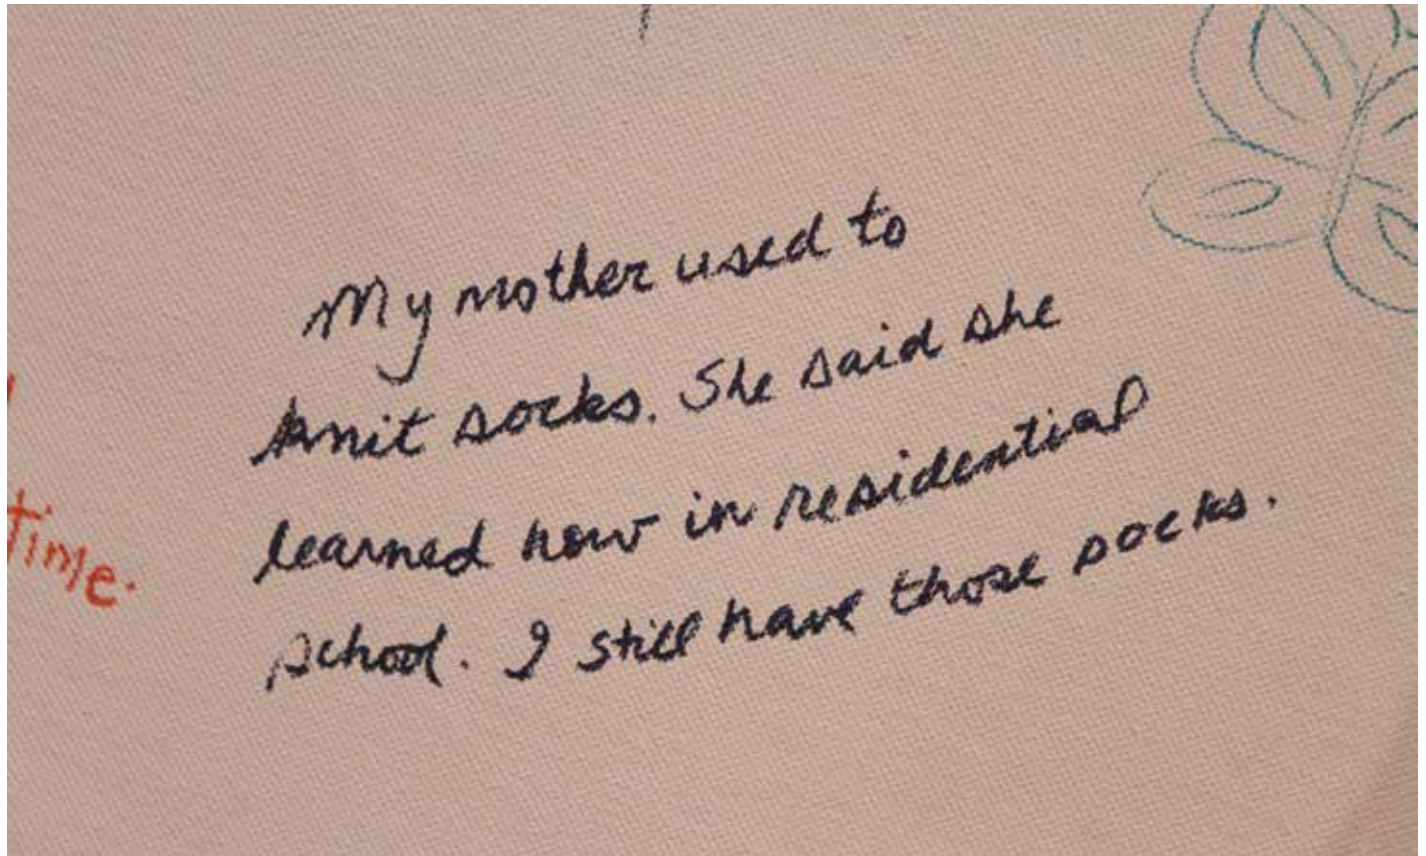 My mother used to
knit socks. She said she
learned how in residential
school. I still have those socks.
Time.